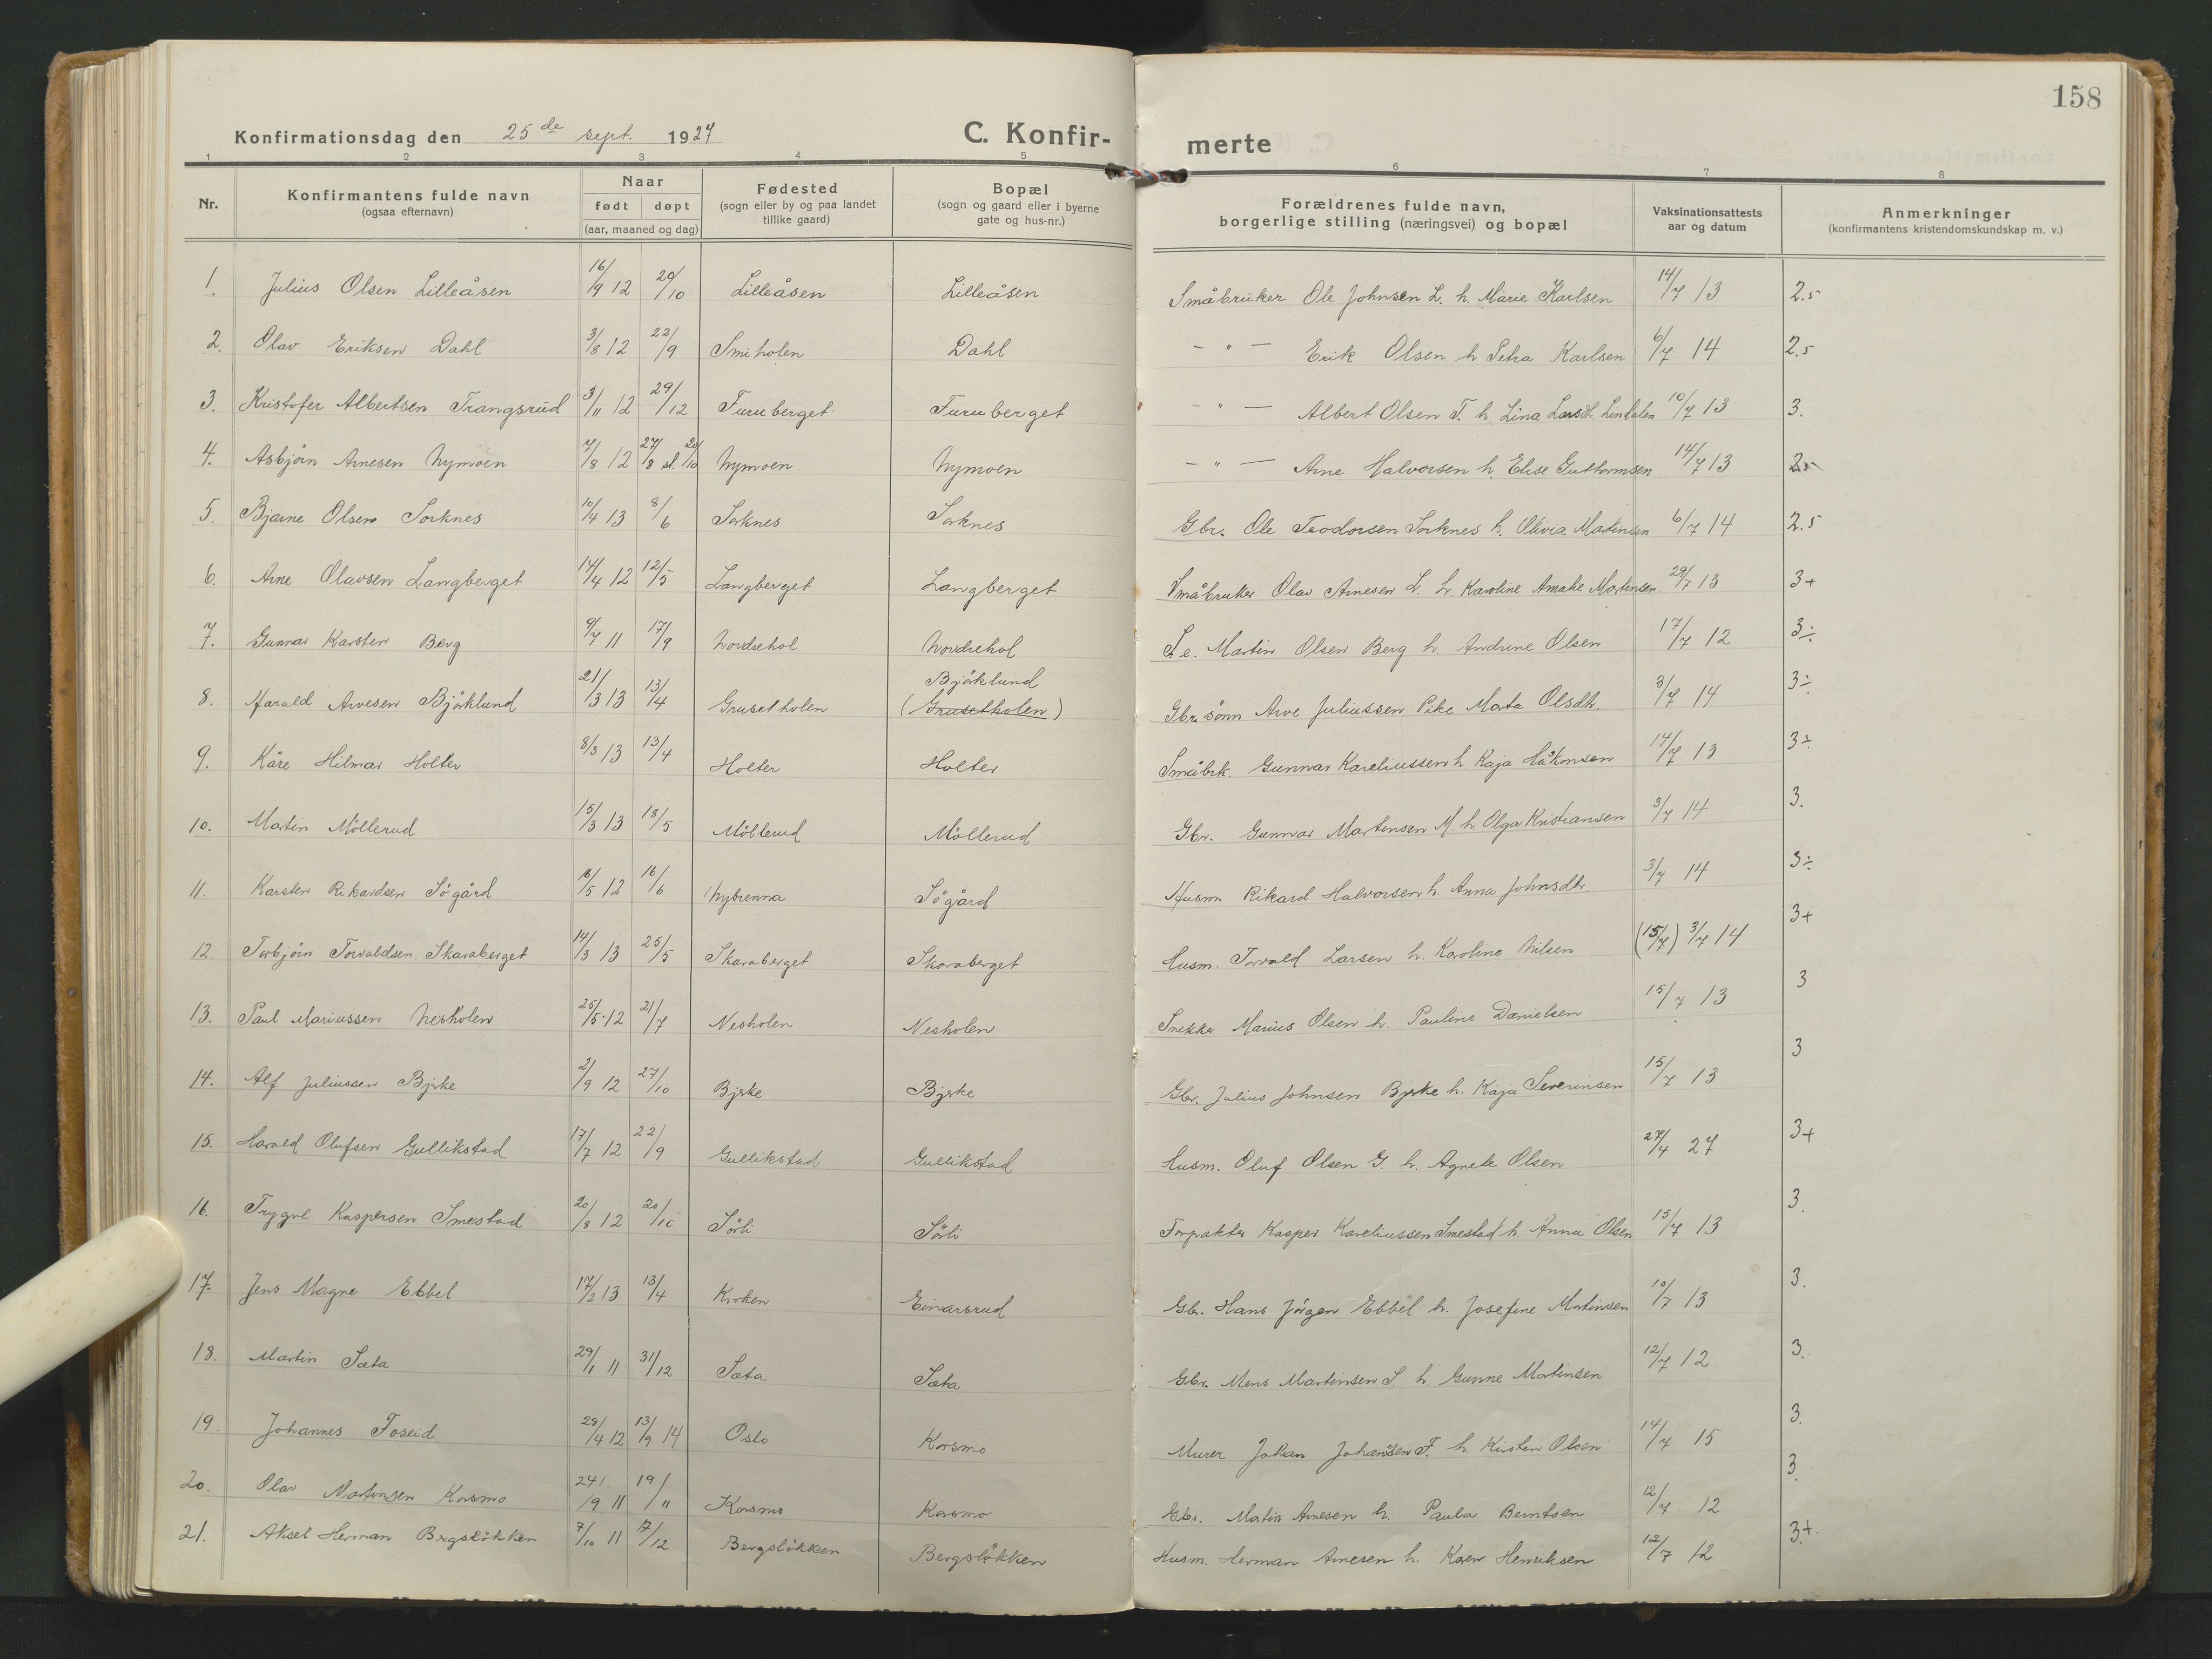 158
Konfirmationsdag den 25de sept. 1927 C. Konfir- merte
1 2 3 4 5 6 7 8
Nr. Konfirmantens fulde navn (ogsaa efternavn) Naar født døpt (aar, maaned og dag) Fødested (sogn eller by og paa landet tillike gaard) Bopæl (sogn og gaard eller i byerne gate og hus-nr.) Forældrenes fulde navn, borgerlige stilling (næringsvei) og bopæl Vaksinationsattests aar og datum Anmerkninger (konfirmantens kristendomskundskap m. v.)
1. Julius Olsen Lilleåsen 16/9 12 20/10 Lilleåsen Lilleåsen Småbruker Ole Johnsen L. h. Marie Karlsen 14/7 13 2.5
2. Olav Eriksen Dahl 3/8 12 22/9 Smiholen Dahl - " - Erik Olsen h. Petra Karlsen 6/7 14 2.5
3. Kristofer Albertsen Trangsrud 3/11 12 29/12 Furuberget Furuberget - " - Albert Olsen T. h. Lina Larsdt. 10/7 13 3.
4. Asbjörn Arnesen Nymoen 7/8 12 27/8 st. 20/10 Nymoen Nymoen - " - Arne Halvorsen h. Elise Guttormsen 14/7 13
5. Bjarne Olsen Sorknes 10/4 13 8/6 Sorknes Sorknes Gbr. Ole Teodorsen Sorknes h. Olivia Martinsen 6/7 14 2.5
6. Arne Olavsen Langberget 14/4 12 12/5 Langberget Langberget Småbruker Olav Arnesen L. h. Karoline Amalie Martinsen 29/7 13 3+
7. Gunnar Karsten Berg 9/7 11 17/9 Nordsehol Nordsehol S. e. Martin Olsen Berg h. Andrine Olsen 17/7 12 3÷
8. Harald Arvesen Björklund 21/3 13 13/4 Grusetholen Björklund (Grusetholen) Gbr. sönn Arve Juliussen Pike Marta Olsdtr. 3/7 14 3÷
9. Kåre Hilmar Holter 8/3 13 13/4 Holter Holter Småbrk. Gunnar Kareliussen h. Kaja Håkonsen 14/7 13 3÷
10. Martin Möllerud 15/3 13 18/5 Möllerud Möllerud Gbr. Gunnar Martinsen M. h. Olga Kristiansen 3/7 14 3.
11. Karsten Rikardsen Sögård 16/5 12 16/6 Nybrenna Sögård Husm. Rikard Halvorsen h. Anna Johnsdtr. 3/7 14 3÷
12. Torbjörn Torvaldsen Skaraberget 14/3 13 25/5 Skaraberget Skaraberget Husm. Torvald Larsen h. Karoline Nilsen (15/7) 3/7 14 3+
13. Paul Mariussen Nesholen 25/5 12 21/7 Nesholen Nesholen Snekker Marius Olsen h. Pauline Danielsen 15/7 13 3
14. Alf Juliussen Bjrke 2/9 12 27/10 Bjrke Bjrke Gbr. Julius Johnsen Bjrke h. Kaja Severinsen 15/7 13 3
15. Harald Olufsen Gullikstad 17/7 12 22/9 Gullikstad Gullikstad Husm. Oluf Olsen G. h. Agnete Olsen 27/4 27 3+
16. Trygve Kaspersen Smestad 20/8 12 20/10 Sörli Sörli Forpakter Kasper Kareliussen Smestad h. Anna Olsen 15/7 13 3.
17. Jens Magne Ebbel 17/2 13 13/4 Kroken Einarsrud Gbr. Hans Jörgen Ebbel h. Josefine Martinsen 10/7 13 3.
18. Martin Sæta 29/1 11 31/12 Sæta Sæta Gbr. Mens Martinsen S. h. Gunne Martinsen 12/7 12 3.
19. Johannes Foseid 29/4 12 13/9 14 Oslo Korsmo Murer Johan Johansen F. h. Kirsten Olsen 14/7 15 3.
20. Olav Martinsen Korsmo 24/9 11 19/11 Korsmo Korsmo Gbr. Martin Arnesen h. Paula Berntsen 12/7 12 3.
21. Aksel Herman Bergslökken 7/10 11 17/12 Bergslökken Bergslökken Husm. Herman Arnesen h. Karen Henriksen 12/7 12 3+.